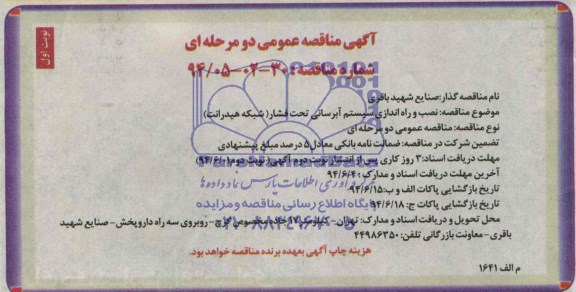 نوبت اول
آگهی مناقصه عمومی دو مرحله ای
شماره مناقصه: ۳۰-۰۲-۹۴/۰۵
نام مناقصه گذار: صنایع شهید باقری
موضوع مناقصه: نصب و راه اندازی سیستم آبرسانی تحت فشار (شبکه هیدرانت)
نوع مناقصه: مناقصه عمومی دو مرحله ای
تضمین شرکت در مناقصه: ضمانت نامه بانکی معادل ۵ درصد مبلغ پیشنهادی
مهلت دریافت اسناد: ۳ روز کاری پس از انتشار نوبت دوم آگهی (نوبت دوم
آخرین مهلت دریافت اسناد و مدارک:
تاریخ بازگشایی پاکات الف و ب: ۹۴/۶/۱۵
تاریخ بازگشایی پاکات ج: ۹۴/۶/۱۸
محل تحویل و دریافت اسناد و مدارک: تهران- کیلومتر ۱۷ جاده مخصوص کرج- روبروی سه راه داروپخش- صنایع شهید
باقری- معاونت بازرگانی تلفن: ۴۴۹۸۶۳۵۰
هزینه چاپ آگهی بعهده برنده مناقصه خواهد بود.
م الف ۱۶۴۱
فن آوری اطلاعات پارس نماد داده ها
پایگاه اطلاع رسانی مناقصه و مزایده